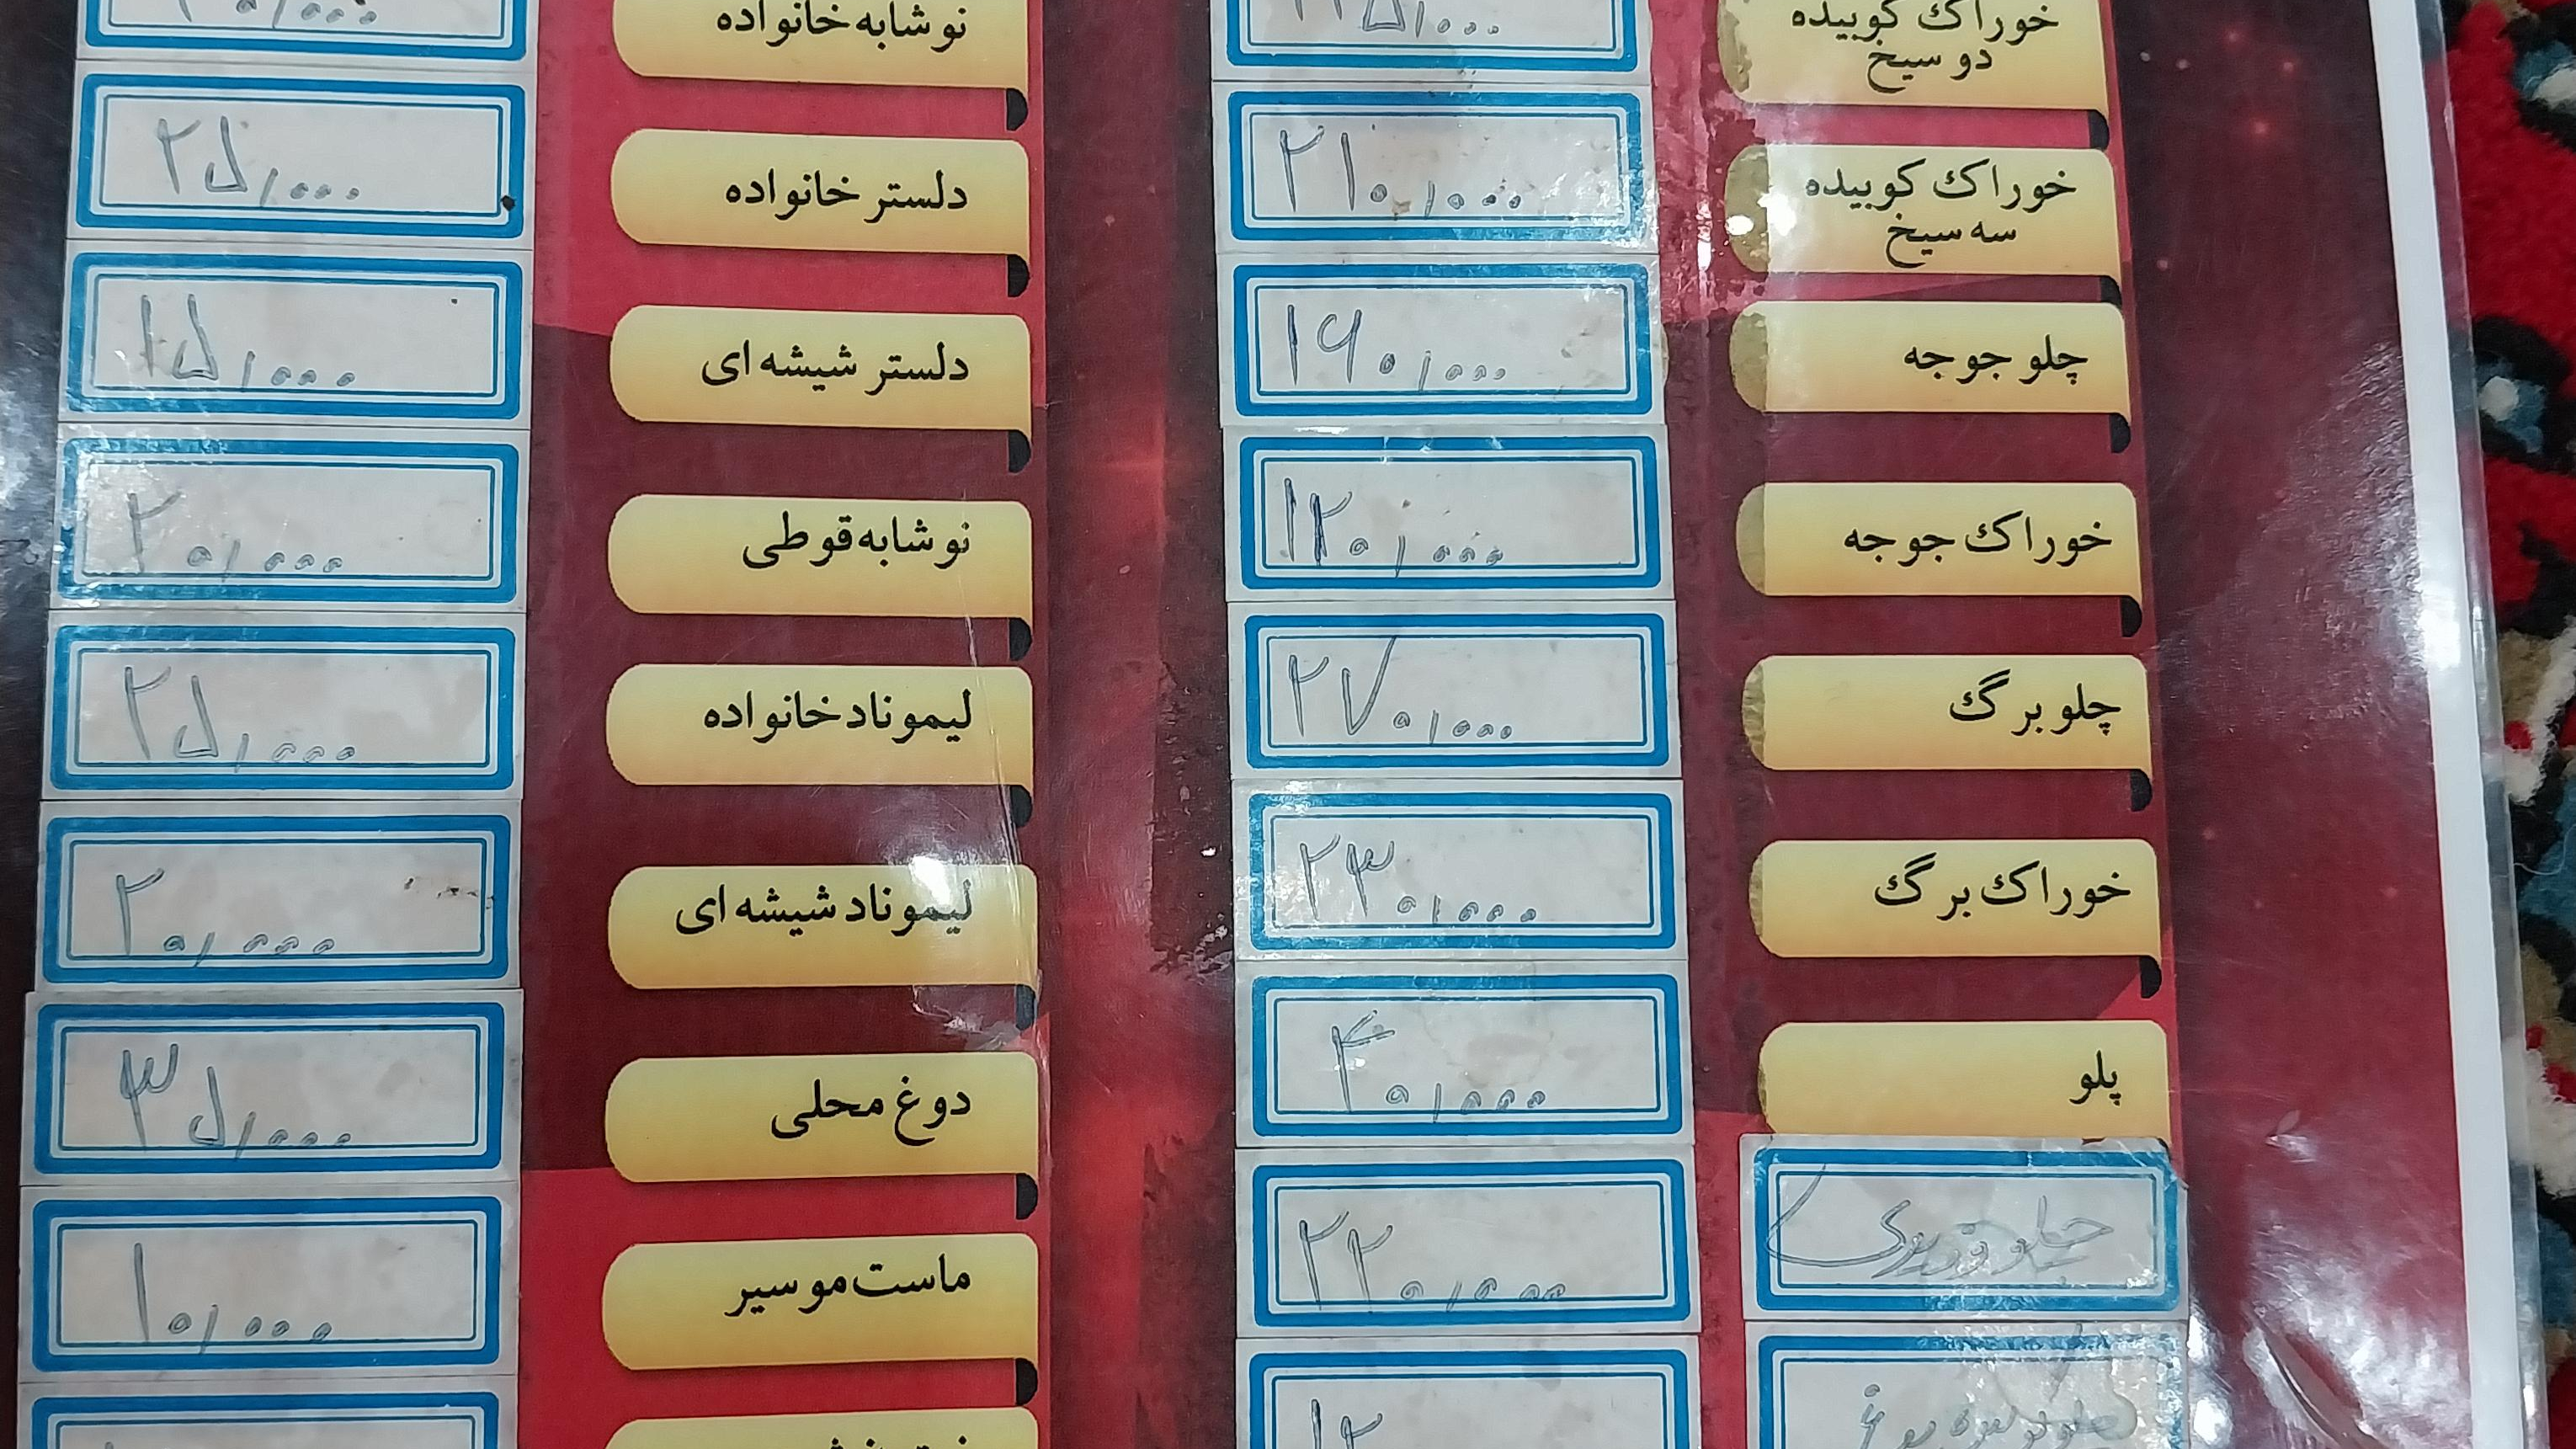 خوراک کوبیده
دو سیخ
خوراک کوبیده
سه سیخ
۲۱۰,۰۰۰
چلو جوجه
۱۶۰,۰۰۰
خوراک جوجه
۱۲۰,۰۰۰
چلو برگ
۲۷۰,۰۰۰
خوراک برگ
۲۳۰,۰۰۰
پلو
۴۰,۰۰۰
۲۲۰,۰۰۰
نوشابه خانواده
دلستر خانواده
۲۵,۰۰۰
دلستر شیشه ای
۱۵,۰۰۰
نوشابه قوطی
۲۰,۰۰۰
لیموناد خانواده
۲۵,۰۰۰
لیموناد شیشه ای
۲۰,۰۰۰
دوغ محلی
۳۵,۰۰۰
ماست موسیر
۱۰,۰۰۰